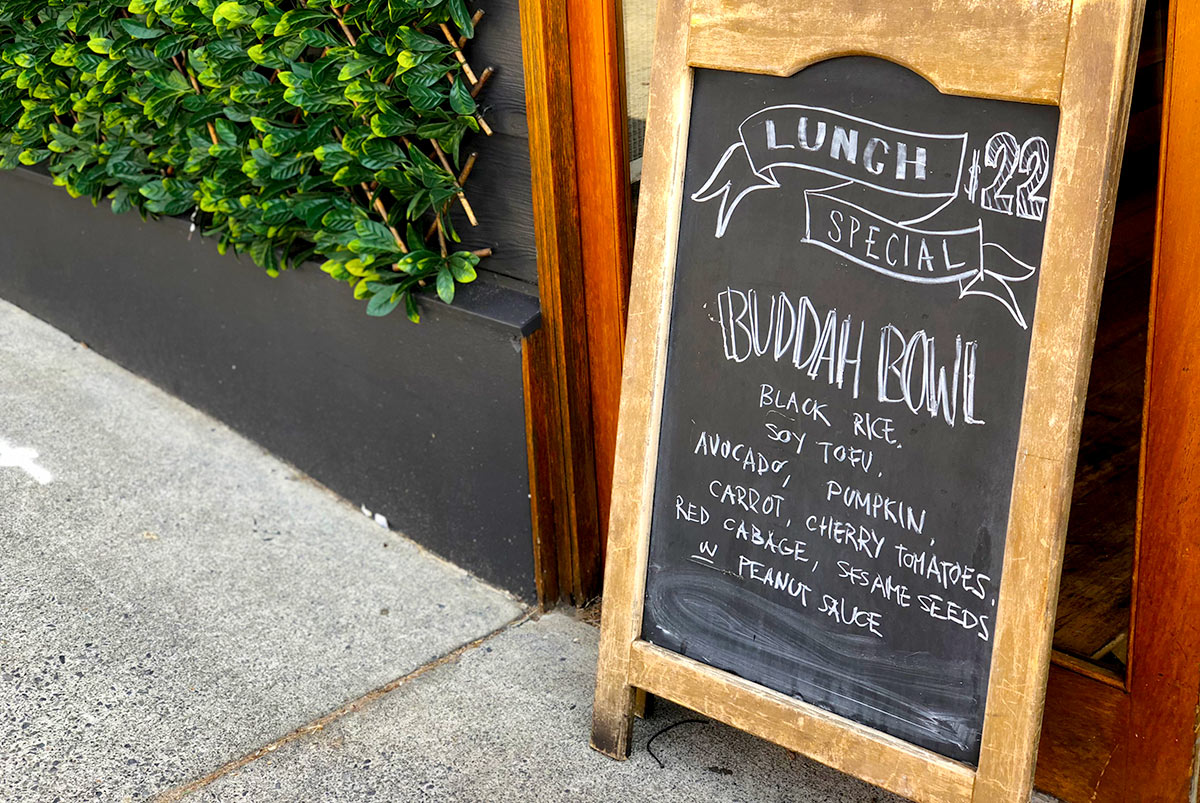 LUNCH $22
SPECIAL
BUDDAH BOWL
BLACK RICE,
SOY TOFU,
AVOCADO, PUMPKIN,
CARROT, CHERRY TOMATOES,
RED CABAGE, SESAME SEEDS
W PEANUT SAUCE